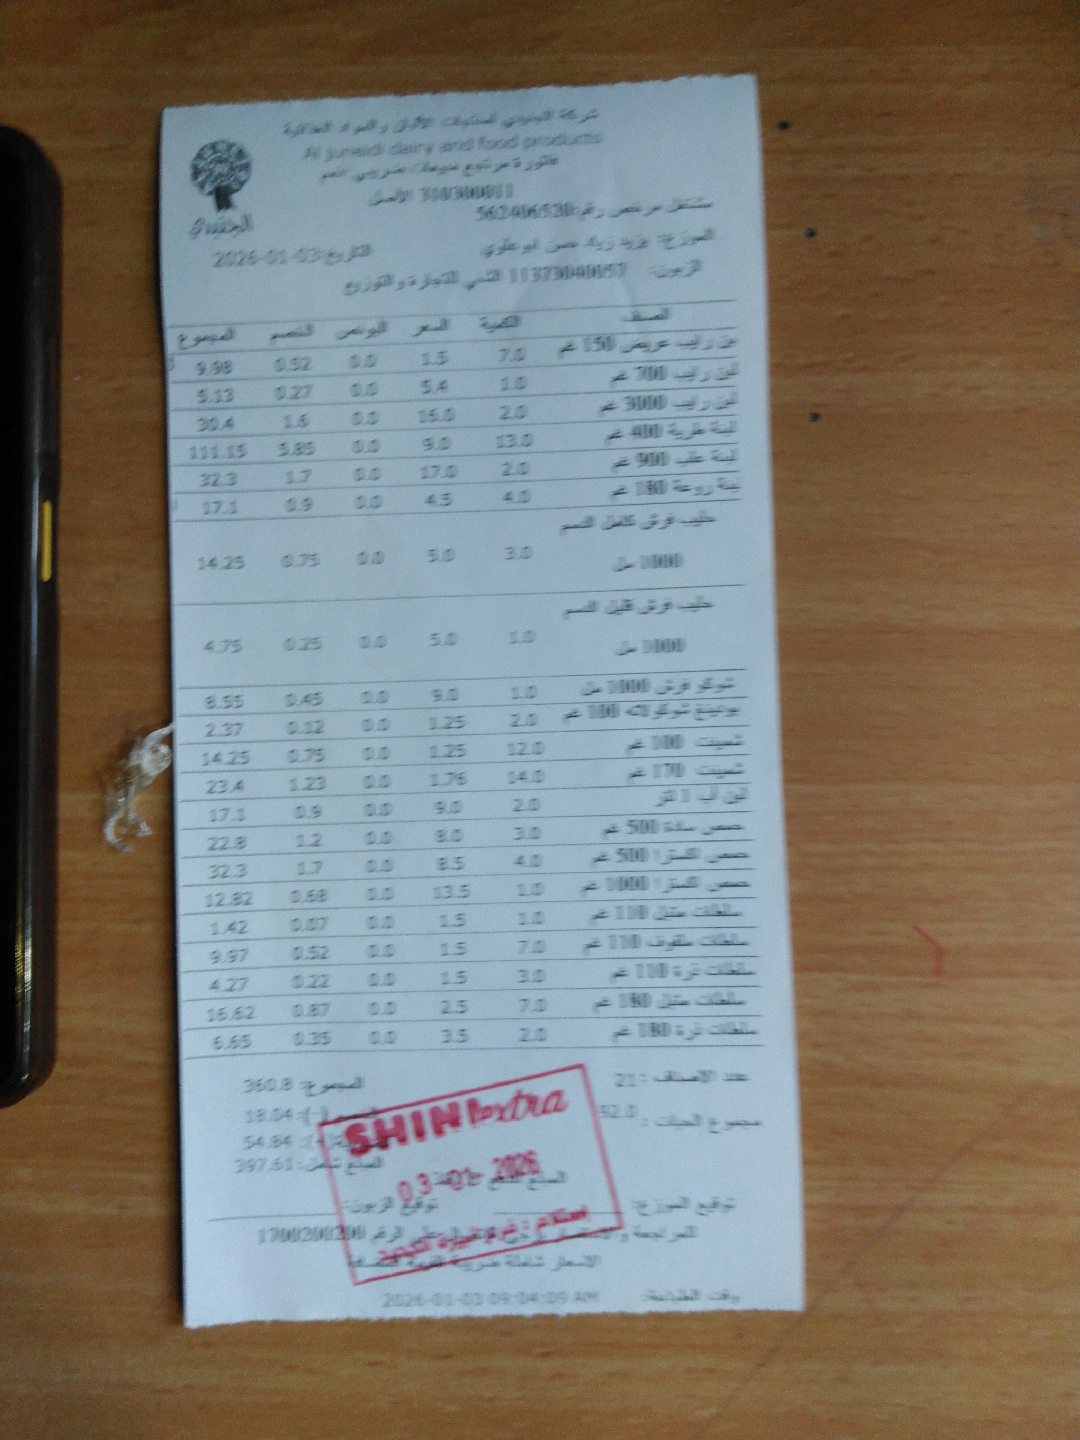 شركة الجنيدي لمنتجات الألبان و المواد الغذائية
Al juneidi dairy and food products
فاتورة مرتجع مبيعات ضريبي خصم
310300011 الأصل
مشتغل مرخص رقم:562406520
الجنيدي
الموزع: يزيد زياد حسن ابو علوي التاريخ:2026-01-03
الزبون: 11373040057 للتجارة والتوزيع
الصنف الكمية السعر البونص الخصم المجموع
رايب عريض 150 غم 7.0 1.5 0.0 0.52 9.98
لبن رايب 700 غم 1.0 5.4 0.0 0.27 5.13
لبن رايب 3000 غم 2.0 16.0 0.0 1.6 30.4
لبنة طرية 400 غم 13.0 9.0 0.0 5.85 111.15
لبنة علب 900 غم 2.0 17.0 0.0 1.7 32.3
لبنة روعة 180 غم 4.0 4.5 0.0 0.9 17.1
حليب فرش كامل الدسم
1000 مل 3.0 5.0 0.0 0.75 14.25
حليب فرش قليل الدسم
1000 مل 1.0 5.0 0.0 0.25 4.75
شوكو فرش 1000 مل 1.0 9.0 0.0 0.45 8.55
بودينغ شوكولاته 100 غم 2.0 1.25 0.0 0.12 2.37
شمينت 100 غم 12.0 1.25 0.0 0.75 14.25
شمينت 170 غم 14.0 1.76 0.0 1.23 23.4
لبن أب 1 لتر 2.0 9.0 0.0 0.9 17.1
حمص سادة 500 غم 3.0 8.0 0.0 1.2 22.8
حمص اكسترا 500 غم 4.0 8.5 0.0 1.7 32.3
حمص اكسترا 1000 غم 1.0 13.5 0.0 0.68 12.82
سلطات متبل 110 غم 1.0 1.5 0.0 0.07 1.42
سلطات ملفوف 110 غم 7.0 1.5 0.0 0.52 9.97
سلطات ذرة 110 غم 3.0 1.5 0.0 0.22 4.27
سلطات متبل 180 غم 7.0 2.5 0.0 0.87 16.62
سلطات ذرة 180 غم 2.0 3.5 0.0 0.35 6.65
عدد الاصناف :21 المجموع: 360.8
مجموع الحبات : 52.0 الخصم (-): 18.04
(+): 54.84
المبلغ شامل: 397.61
SHINI extra
03 -01- 2026
المبلغ
توقيع الموزع: توقيع الزبون:
للمراجعة والاستفسار على الرقم 1700200200
استلام : فرع
الاسعار شاملة ضريبة القيمة المضافة
وقت الطباعة: 2026-01-03 09:04:09 AM